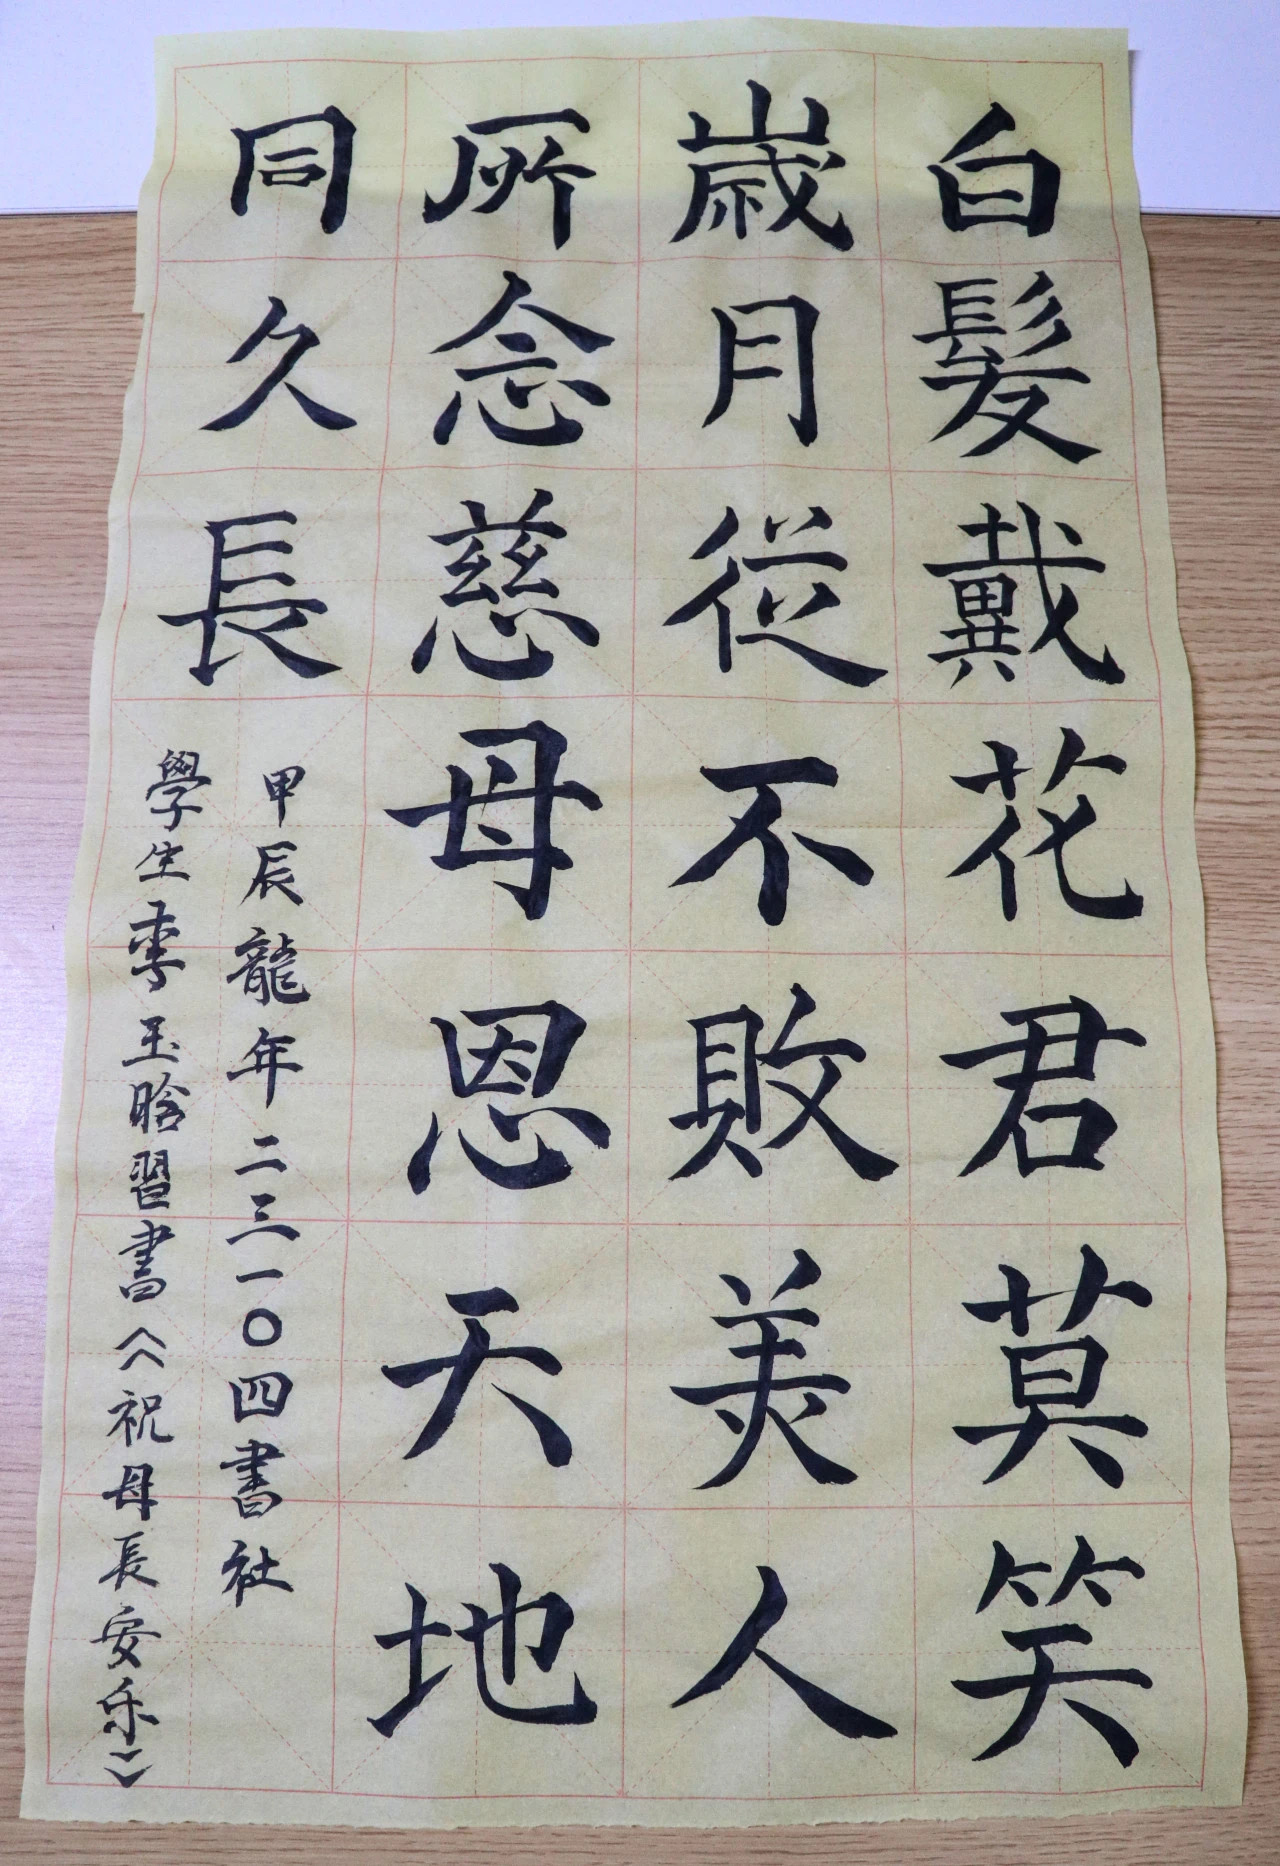 白髮戴花君莫笑
歲月從不敗美人
所念慈母恩天地
同久長
甲辰龍年二三一〇四書社
學生李玉晗習書《祝母長安乐》